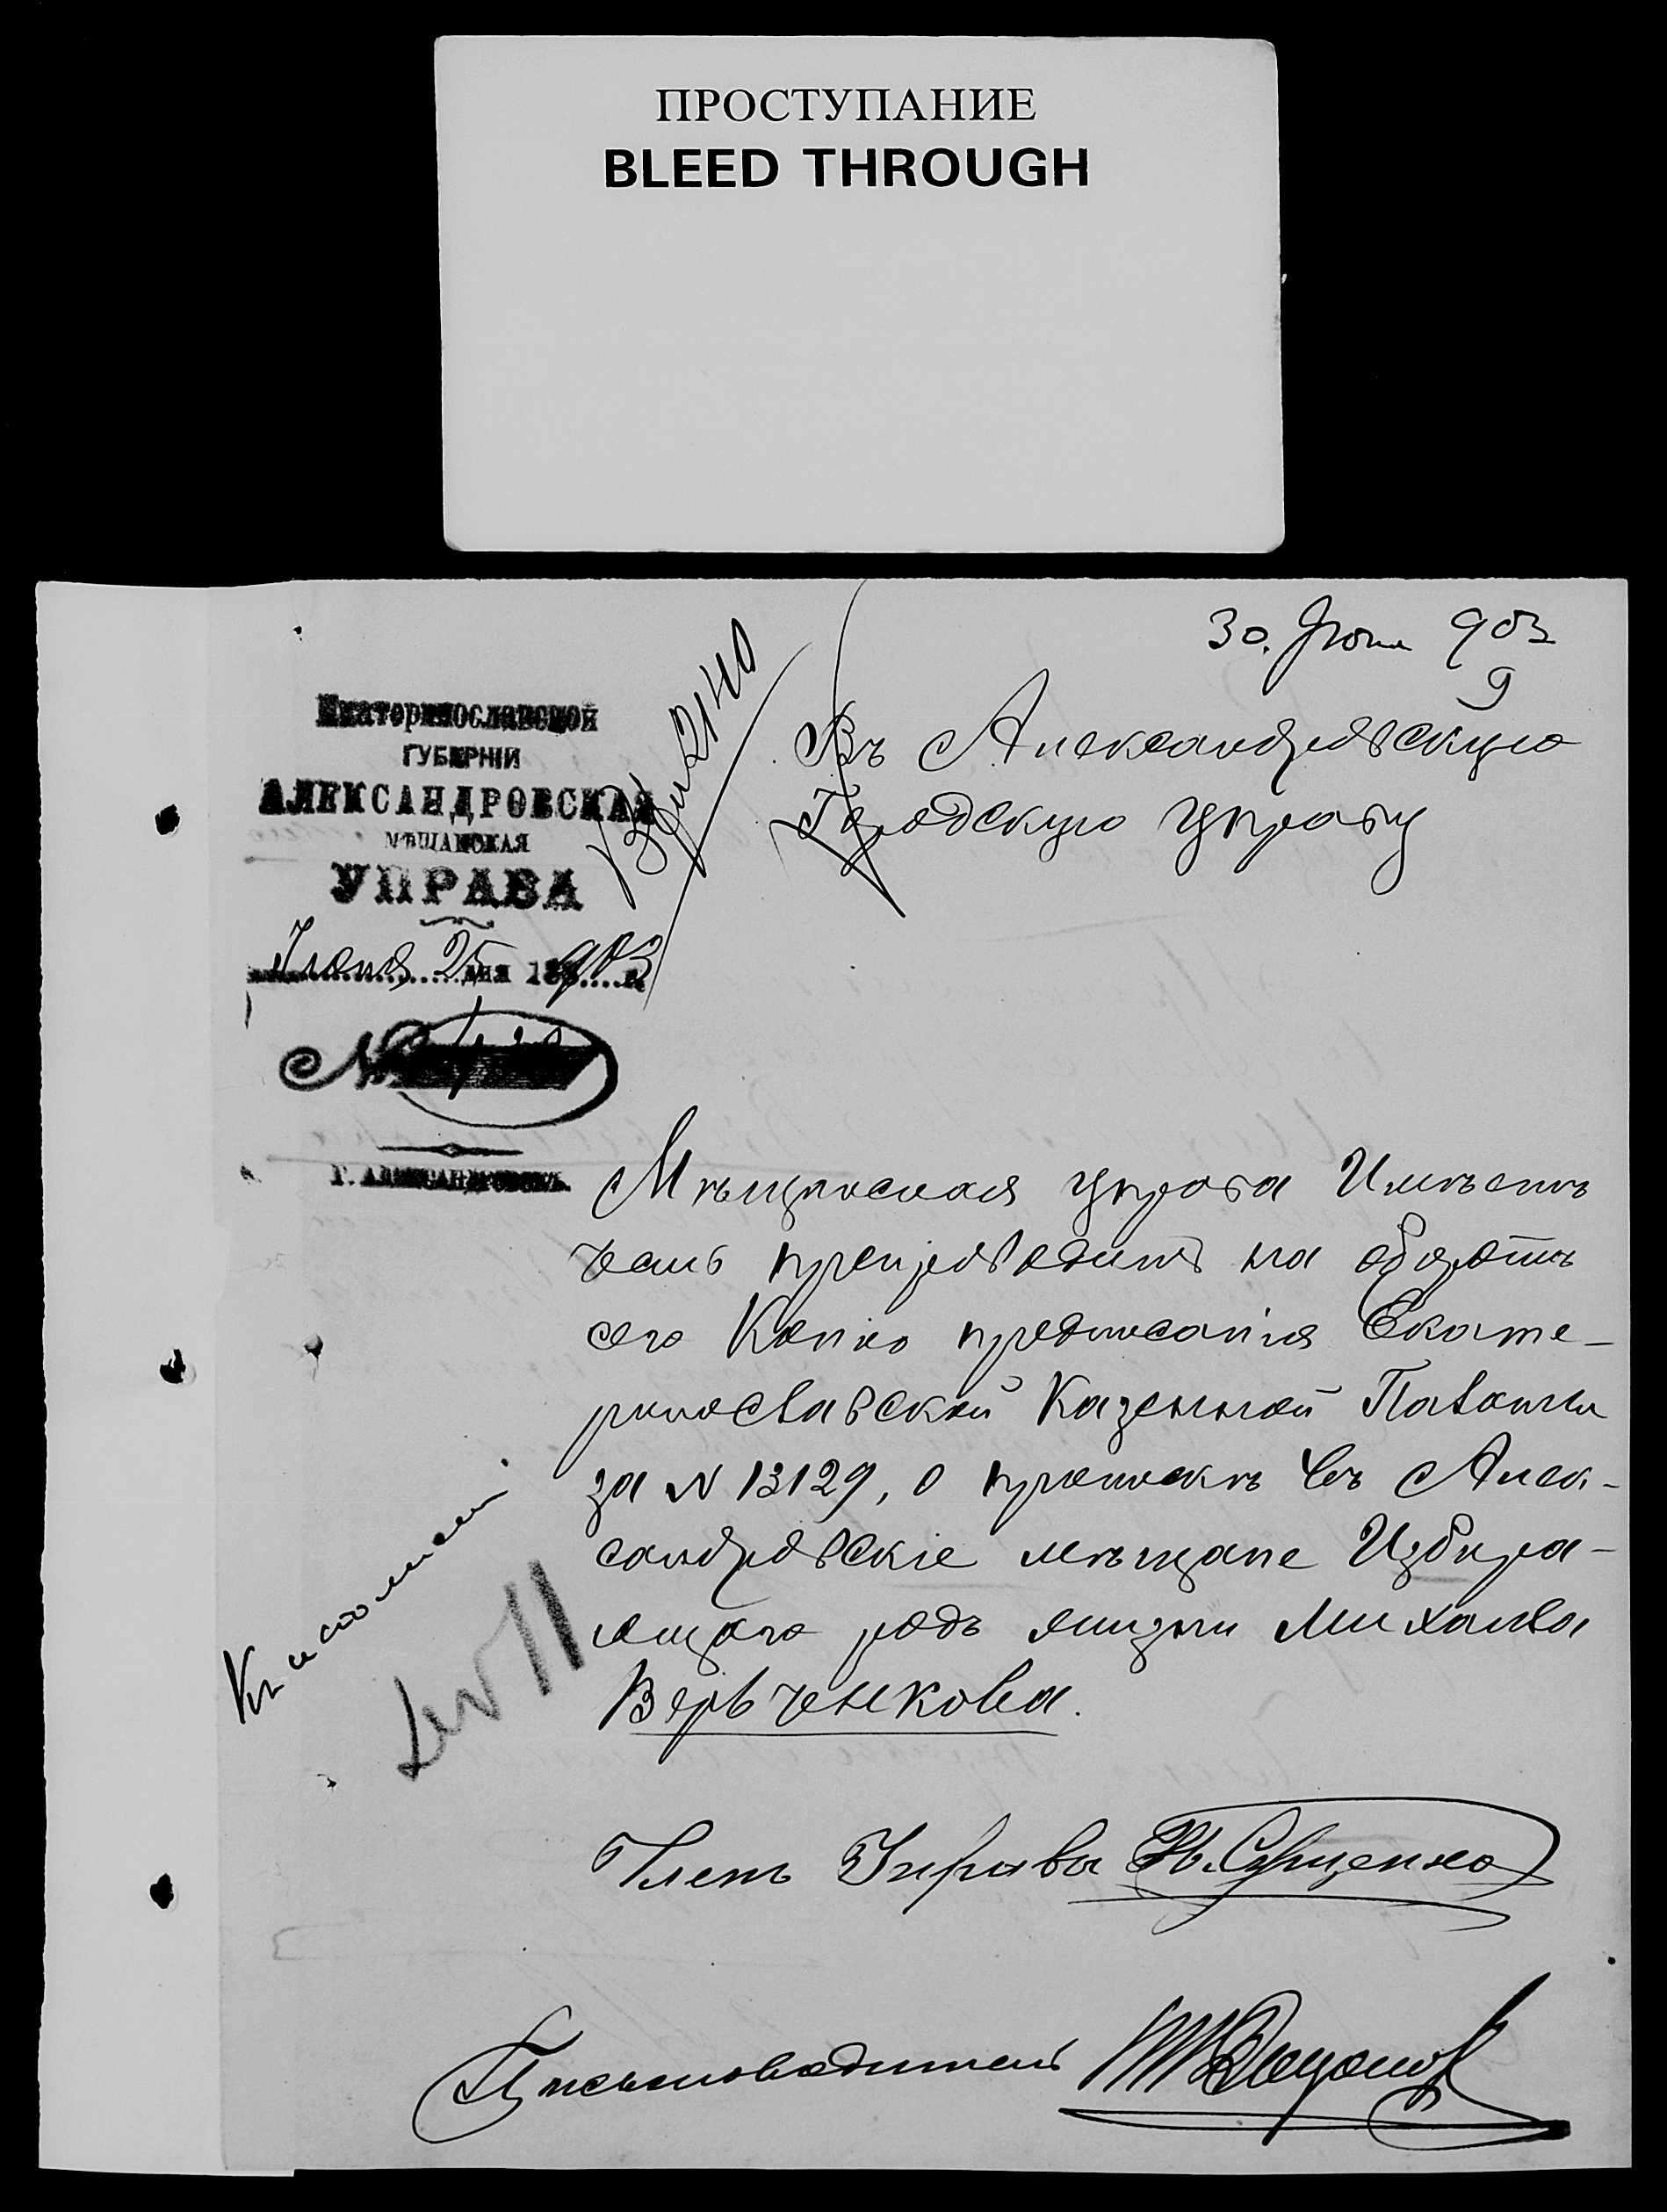 ПРОСТУПАНИЕ
BLEED THROUGH
30. Июня 903
9
Екатеринославской
ГУБЕРНІИ
АЛЕКСАНДРОВСКАЯ
МѢЩАНСКАЯ
УПРАВА
Іюня 25 дня 1903 г.
№
Г. АЛЕКСАНДРОВСКЪ.
2140
Въ Александровскую
Городскую управу
Мѣщанская управа Имѣетъ
честь препроводить на оборотѣ
сего Копію предписанія Екате-
ринославской Казенной Палаты
за № 13129, о припискѣ въ Алек-
сандровскіе мѣщане Избира-
ющаго родъ жизни Михаила
Вервченкова.
Къ исполнен.
Членъ Управы
Письмоводитель